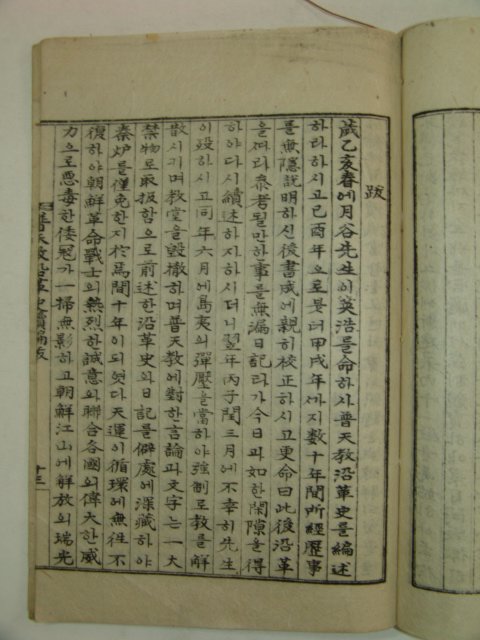 跋
歲乙亥春에月谷先生이英浩를命하사普天敎沿革史를編述
하라하시고己酉年으로붓터甲戌年까지數十年間所經歷事
를無隱說明하신後書成에親히校正하시고更命曰此後沿革
을따라叅考될만한事를無漏日記라가今日과如한閑隙을得
하야다시續述하자하시더니翌年丙子閏三月에不幸히先生
이歿하시고同年六月에島夷의彈壓을當하야强制로敎를解
散시기며敎堂을毀撤하며普天敎에對한言論과文字는一大
禁物로取扱함으로前述한沿革史와日記를僻處에深藏하야
秦炉를僅免한지於焉間十年이되엿다天運이循環에無徃不
復하야朝鮮革命戰士의熱烈한誠意와聯合各國의偉大한威
力으로惡毒한倭冦가一掃無影하고朝鮮江山에解放의瑞光
普天敎沿革史續編跋
十三